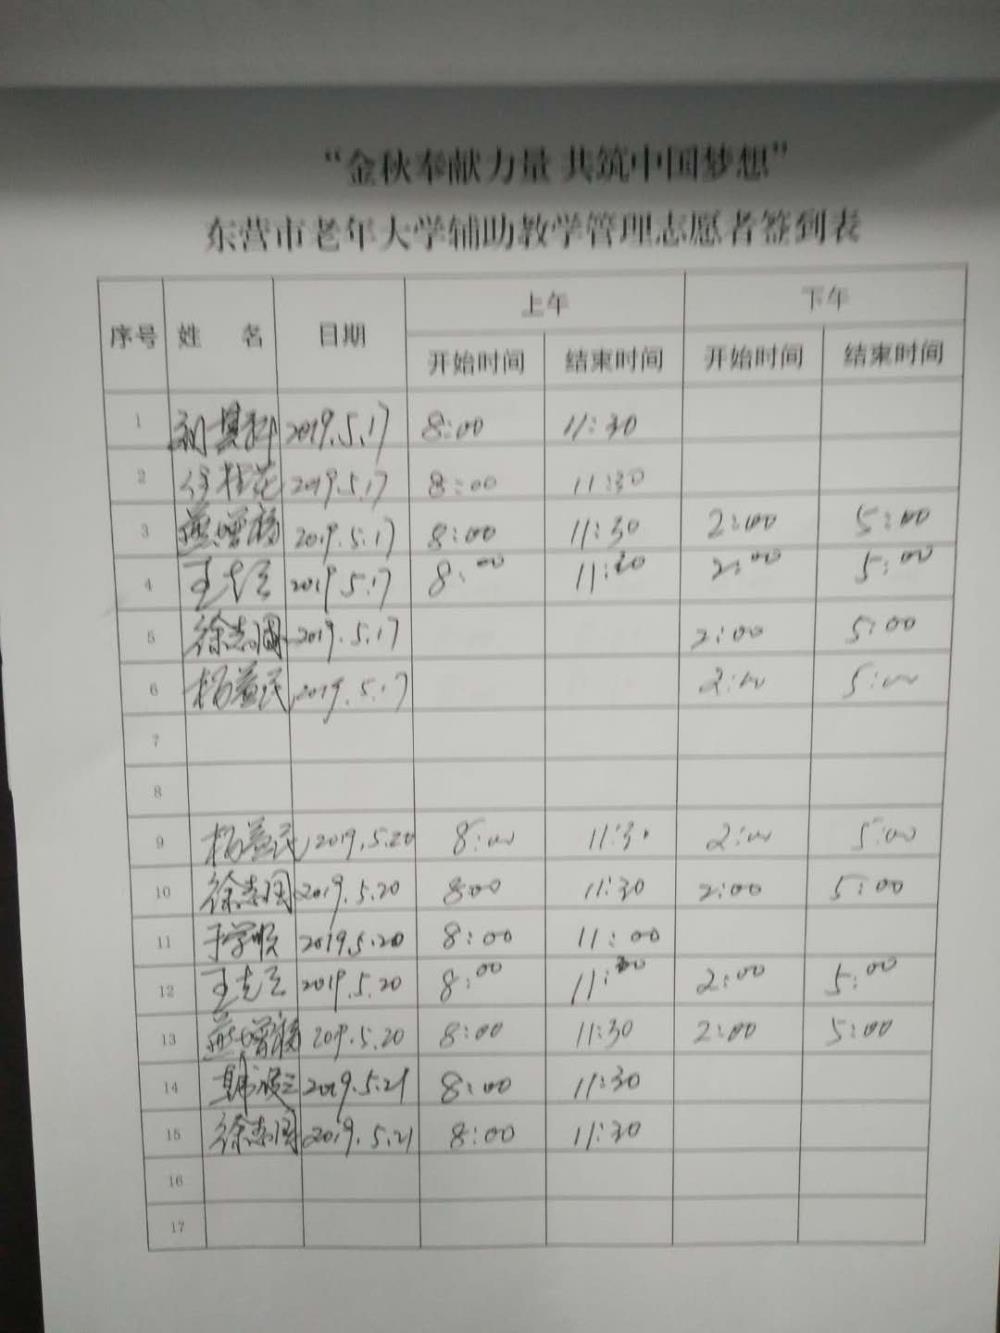 “金秋奉献力量 共筑中国梦想”
东营市老年大学辅助教学管理志愿者签到表
序号 姓 名 日期 上午 下午
开始时间 结束时间 开始时间 结束时间
1 2019.5.17 8:00 11:30
2 徐桂花 2019.5.17 8:00 11:30
3 燕增 2019.5.17 8:00 11:30 2:00 5:00
4 王 2019.5.17 8:00 11:30 2:00 5:00
5 徐志国 2019.5.17 2:00 5:00
6 杨益民 2019.5.17 2:00 5:00
7
8
9 杨益民 2019.5.20 8:00 11:30 2:00 5:00
10 徐志国 2019.5.20 8:00 11:30 2:00 5:00
11 2019.5.20 8:00 11:00
12 王 2019.5.20 8:00 11:30 2:00 5:00
13 燕增 2019.5.20 8:00 11:30 2:00 5:00
14 2019.5.21 8:00 11:30
15 徐志国 2019.5.21 8:00 11:30
16
17